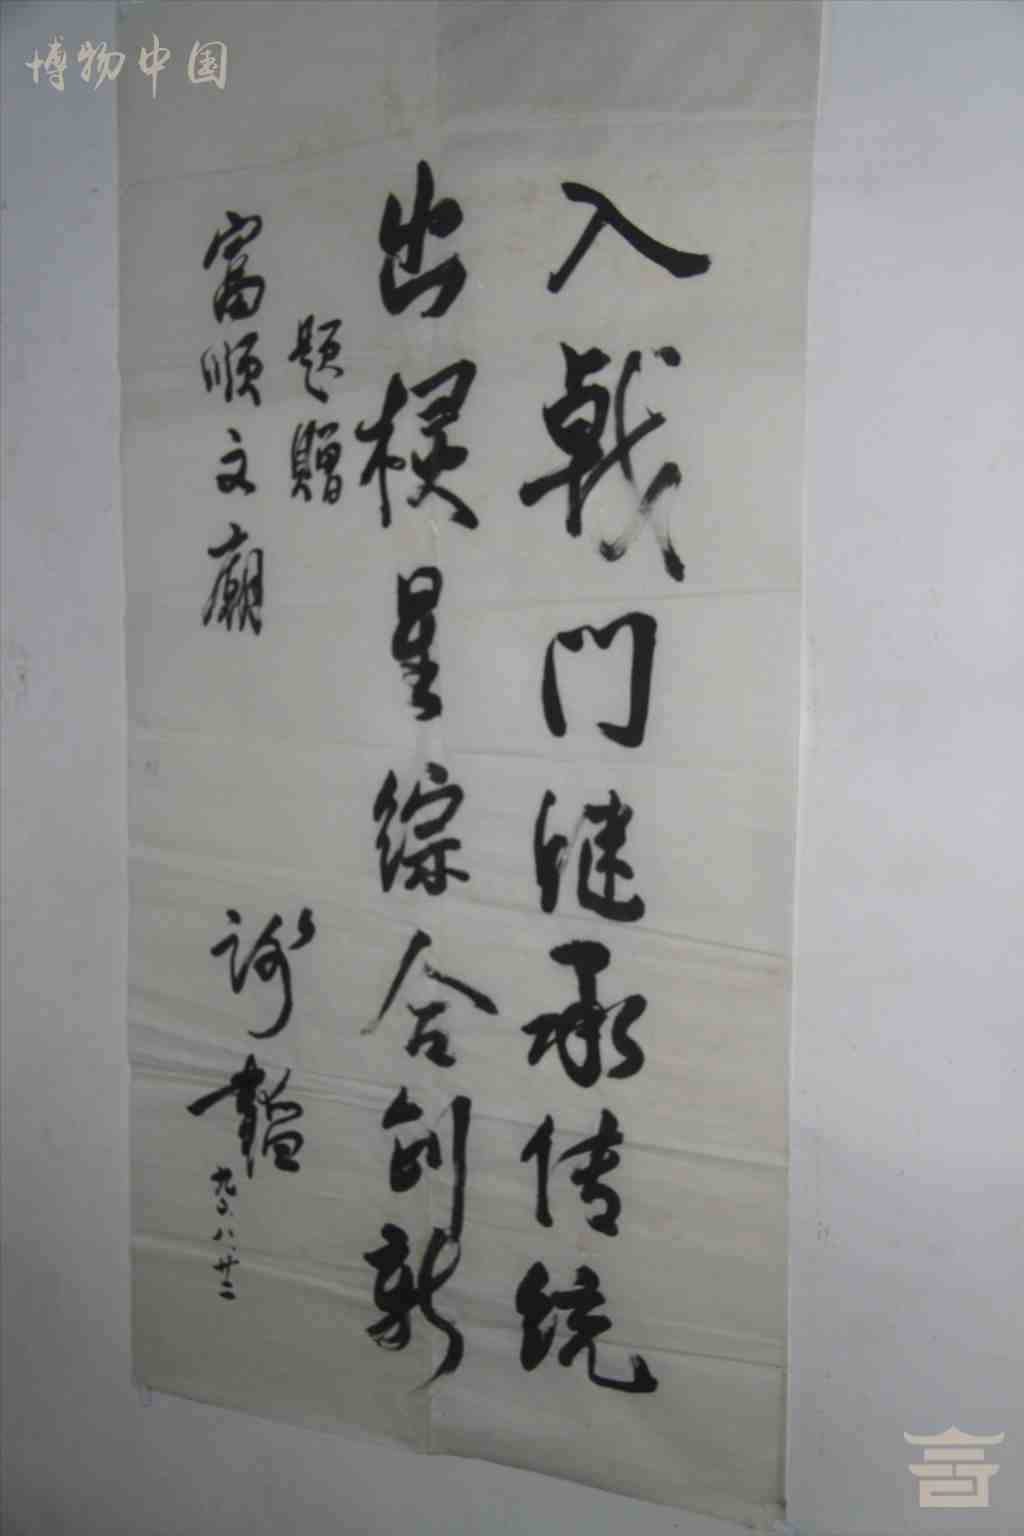 博物中国
入戟門继承传统
出棂星综合创新
题赠
富顺文廟
谢韬
九〇、八、廿二